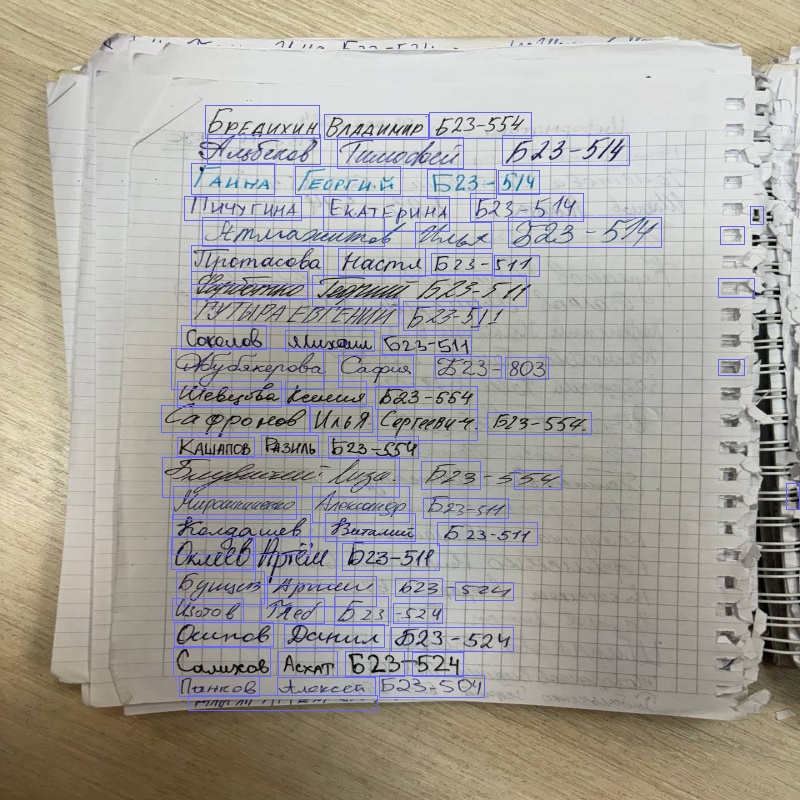 Бредихин Владимир Б23-554
Альбеков Тимофей Б23-514
Ганна Георгий Б23-514
Пичугина Екатерина Б23-514
Илья Б23-514
Протасова Настя Б23-511
Георгий Б23-511
ГУТЫРА ЕВГЕНИЙ Б23-511
Соколов Михаил Б23-511
Жубякерова Сафия Б23-803
Шевцова Ксения Б23-554
Сафронов Илья Сергеевич. Б23-554.
Кашапов Разиль Б23-554
Лиза. Б23-554
Мирошниченко Александр Б23-511
Колдашев Виталий Б23-511
Оклеев Артём Б23-511
Артем Б23-524
Изотов Глеб Б23-524
Осипов Данил Б23-524
Салихов Асхат Б23-524
Панков Алексей Б23-504